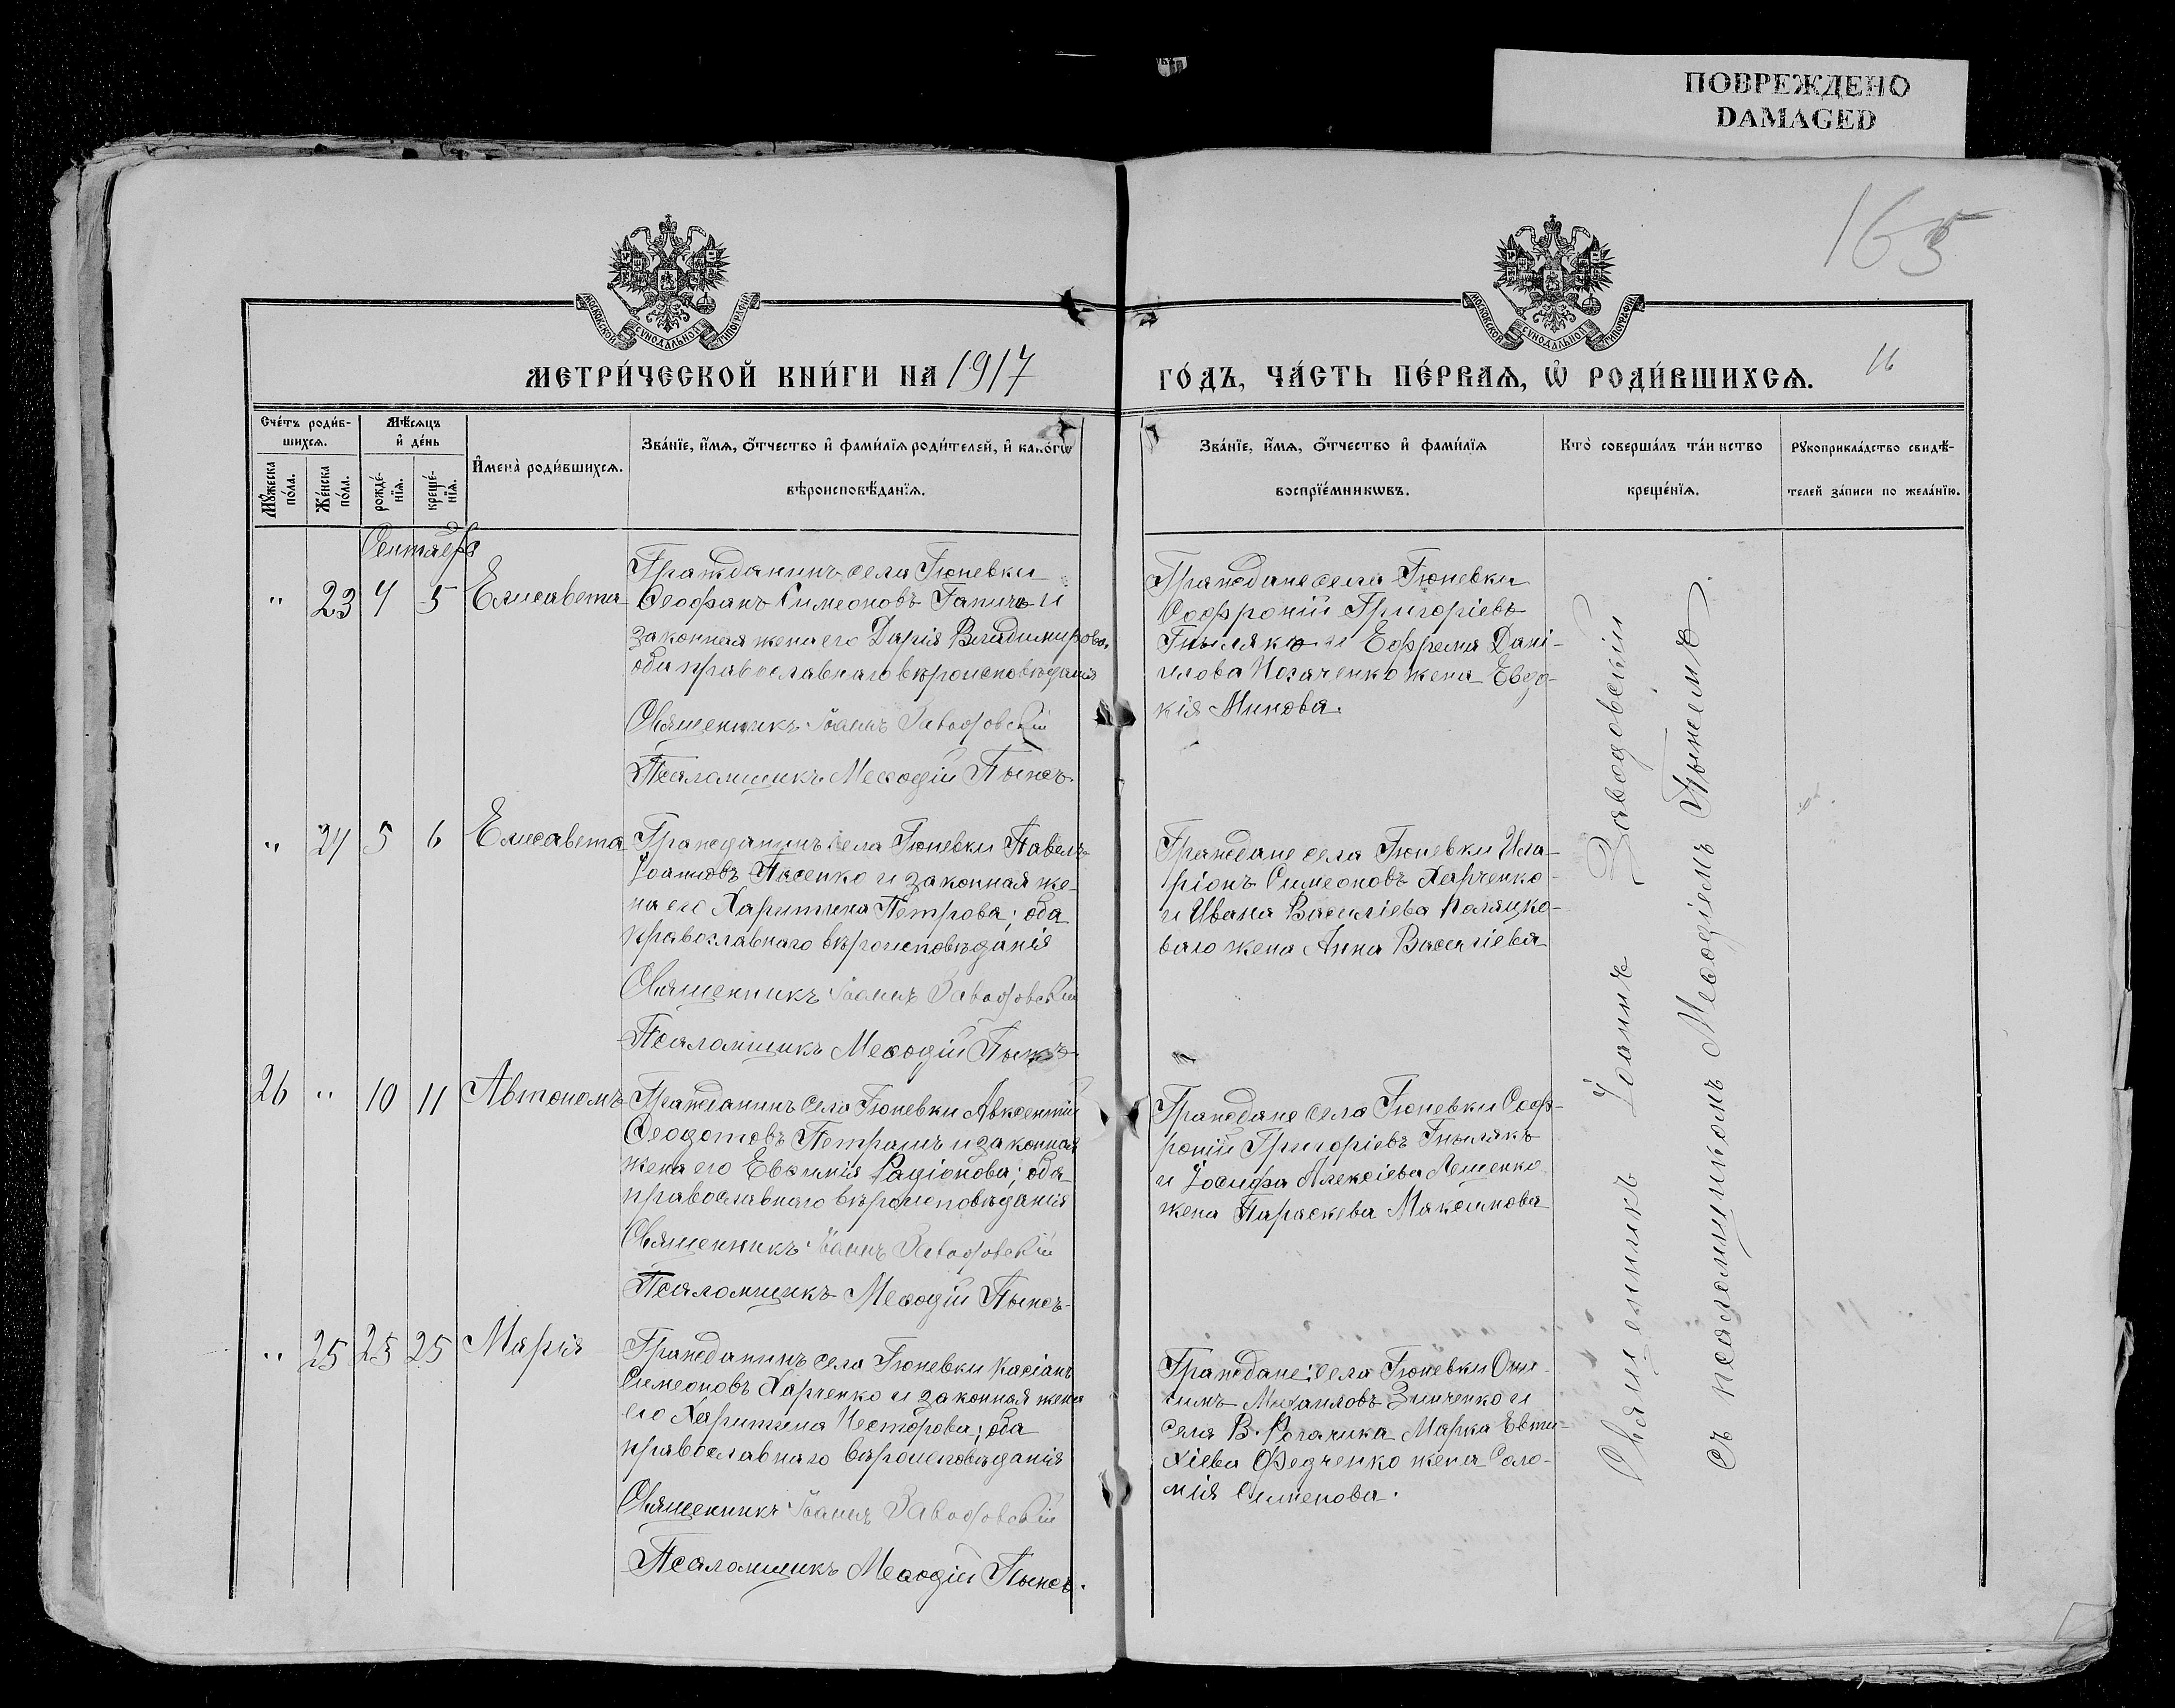 ПОВРЕЖДЕНО
DAMAGED
165
МОСКОВСКОЙ СУНОДАЛЬНОЙ ТИПОГРАФІИ
МОСКОВСКОЙ СУНОДАЛЬНОЙ ТИПОГРАФІИ
МЕТРИ́ЧЕСКОЙ КНИ́ГИ НА 1917
ГО́ДЪ, ЧА́СТЬ ПЕ́РВАЯ, Ѡ҆ РОДИ́ВШИХСѦ.
16
Сче́тъ роди́в-
шихсѧ.
Мꙋ́жеска по́ла.
Же́нска по́ла.
Мѣ́сѧцъ
и҆ де́нь
рожде́-
нїѧ.
креще́-
нїѧ.
И҆мена̀ роди́вшихсѧ.
Зва́нїе, и҆́мѧ, ѻ҆́тчество и҆ фами́лїѧ роди́телей, и҆ како́гѡ
вѣроисповѣ́данїѧ.
Зва́нїе, и҆́мѧ, ѻ҆́тчество и҆ фами́лїѧ
воспрїе́мникѡвъ.
Кто̀ соверша́лъ та́инство
креще́нїѧ.
Рꙋкоприкла́дство свидѣ́-
телей за́писи по жела́нїю.
Сентябрь
" 23 4 5 Елисавета
Гражданинъ села Гюневки
Ѳеофанъ Симеоновъ и
законная жена его Дарія Владимирова,
оба православнаго вѣроисповѣданія
Священникъ Іоаннъ Заводовскій
Псаломщикъ Меѳодій Пынсъ.
Граждане села Гюневки
Софроній Григоріевъ
Гнылякъ и Ефрема Дані-
илова жена Евдо-
кія Минова.
" 24 5 6 Елисавета
Гражданинъ села Гюневки Павелъ
Іоанновъ и законная же-
на его Харитина Петрова; оба
православнаго вѣроисповѣданія
Священникъ Іоаннъ Заводовскій
Псаломщикъ Меѳодій Пынсъ
Граждане села Гюневки Ила-
ріонъ Симеоновъ Харченко
и Ивана Василіева
жена Анна Василіева
26 " 10 11 Автономъ
Гражданинъ села Гюневки Авксентій
Ѳеодотовъ Петрашъ и законная
жена его Евѳимія Радіонова; оба
православнаго вѣроисповѣданія
Священникъ Іоаннъ Заводовскій
Псаломщикъ Меѳодій Пынсъ
Граждане села Гюневки Соф-
роній Григоріевъ Гнылякъ
и Іосифа Алексіева Лещенко
жена Параскева Максимова
" 25 25 25 Марія
Гражданинъ села Гюневки Касіанъ
Симеоновъ Харченко и законная жена
его Харитина Несторова; оба
православнаго вѣроисповѣданія
Священникъ Іоаннъ Заводовскій
Псаломщикъ Меѳодій Пынсъ.
Граждане: села Гюневки Они-
симъ Михаиловъ Зинченко и
села В. Рогачика Марка Евти-
хіева Федченко жена Соло-
мія Симеонова.
Священникъ Іоаннъ Заводовскій
съ псаломщикомъ Меѳодіемъ Пынсомъ.